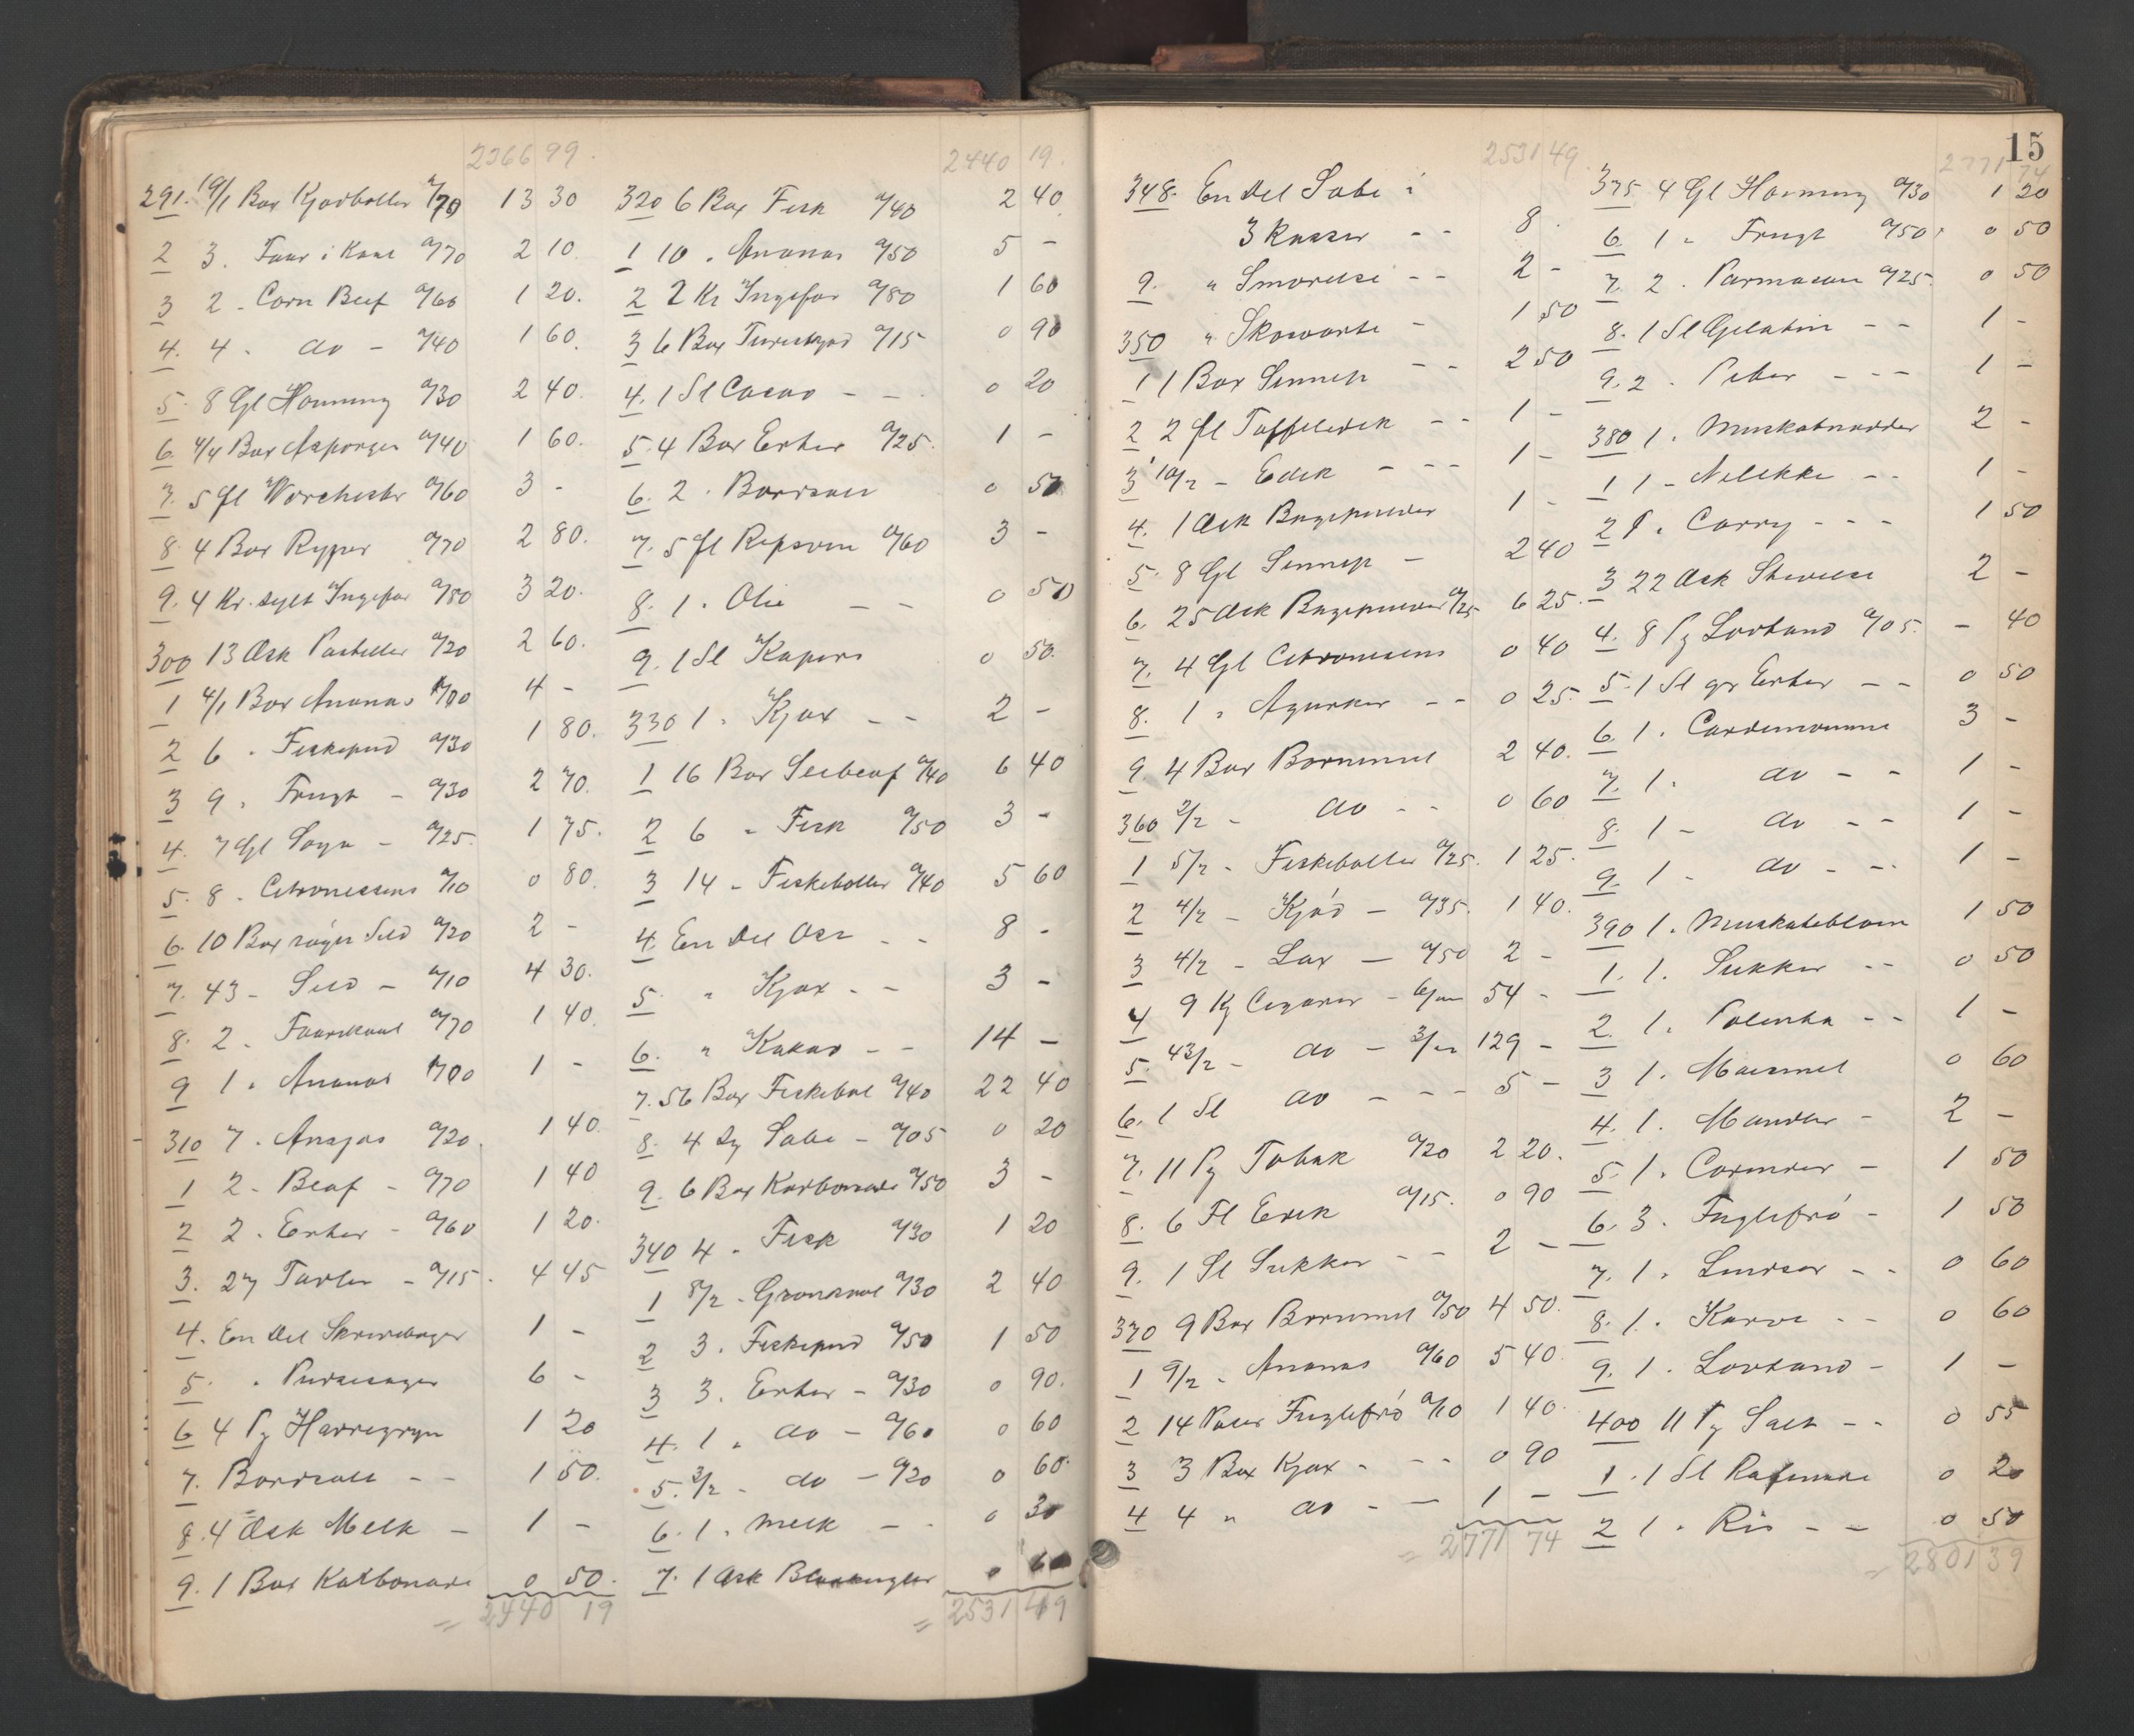 2366 99.
291. 19/1 Box Kjødboller a/70 13 30
2 3. Faar i Kaal a/70 2 10.
3 2 - Corn Beef a/60 1 20.
4. 4 - do - a/40 1 60.
5. 8 Gl Honning a/30 2 40.
6. 4/4 Box Asparges a/40 1 60.
7. 5 fl Worchester a/60 3 -
8 4 Box Ryper a/70 2 80.
9. 4 Kr. sylt Ingefær a/80 3 20.
300 13 Æsk Pasteller a/20 2 60.
1 4/1 Box Ananas 4 -
2 6 . Fiskepud a/30 1 80.
3 9 . Frugt - a/30 2 70.
4. 7 Gl Soya - a/25. 1 75.
5. 8 . Citronessens a/10 0 80.
6. 10 Box røget Sild a/20 2 -
7. 43 - Sild - a/10 4 30.
8. 2 . Faarikaal a/70 1 40.
9 1 . Ananas 1 -
310 7 . Ansjos a/20. 1 40.
1 2 - Beaf - a/70 1 40
2 2 . Erter - a/60 1 20.
3. 27 Tavler - a/15. 4 45
4. En Del Skrivebøger 1 -
5. . Pudsesager 6 -
6 4 Pz Havregryn 1 20
7. Bordsalt - - 1 50.
8. 4 Æsk Melk - 1 -
9. 1 Box Karbonade 0 50.
= 2440 19
2440 19.
320 6 Box Fisk a/40 2 40
1 10 . Ananas a/50 5 -
2 2 Kr Ingefær a/80 1 60
3 6 Box a/15 0 90
4. 1 Sl Cacao - - 0 20
5. 4 Box Erter a/25. 1 -
6. 2 . Bordsalt 0 50
7. 5 fl Ripsvin a/60 3 -
8. 1 . Olie - - 0 50
9. 1 Sl Kapers 0 50.
330 1. Kjæx - - 2 -
1 16 Box Seibeaf a/40 6 40
2 6 - Fisk a/50 3 -
3 14 - Fiskeboller a/40 5 60
4. En Del Ost - - 8 -
5. " Kjæx - - 3 -
6. " Kakao - - 14 -
7. 56 Box Fiskebol a/40 22 40
8. 4 Sæbe - a/05 0 20
9. 6 Box Karbonade a/50 3 -
340 4 - Fisk a/30 1 20
1 8/2 - Grønsaker a/30 2 40
2 3 . Fiskepud a/50 1 50
3 3 . Erter - a/30 0 90.
4. 1 . do - a/60 0 60
5. 3/2 - do - a/20 0 60.
6. 1 . melk - - 0 30
7. 1 Æsk 0 60
= 2531 49
15
2531 49.
348. En Del Sæbe i
3 Kasser - - 8.
9. " Smørelse - - 2 -
350 " Skosværte - 1 50
1 1 Box Sennep - - 2 50
2 2 fl Taffeledik - - 1 -
3 10/2 - Edik - - - 1 -
4. 1 Æsk Bagepulver 1 -
5. 8 Gl Sennep - 2 40
6. 25 Æsk Bagepulver a/25 6 25.
7. 4 Gl Citronessens 0 40
8. 1 . Agurker - - 0 25.
9 4 Box Barnemel 2 40.
360 2/2 - do - - 0 60
1 5/2 - Fiskeboller a/25. 1 25.
2 4/2 - Kjød - a/35. 1 40.
3 4/2 - Lax - a/50 2 -
4 9 Kz Cigarer - 54 -
5. 43/2 - do - 129 -
6. 1 Sl do - - - 5 -
7. 11 Pz Tobak a/20 2 20.
8. 6 Fl Edik a/15. 0 90
9. 1 Sl Sukker - - 2 -
370 9 Box Barnemel a/50 4 50.
1 9/2 - Ananas a/60 5 40.
2 14 Poser Fuglefrø a/10 1 40.
3 3 Box Kjæx - - - 0 90
4 4 " do - - 1 -
= 2771 74
2771 74
375 4 Gl Honning a/30 1 20
6. 1 - Frugt a/50. 0 50
7. 2 . Parmasan a/25. 0 50
8. 1 Sl Gelatin - - 1 -
9. 2 . Peber - - - 1 -
380 1 . Muskatnødder 2 -
1 1 - Nellikke - - 1 -
2 1 . Carry - - - 1 50
3 22 Æsk Stivelse 2 -
4. 8 Pz Lorband a/05. - 40
5. 1 Sl gr Erter - - 0 50
6. 1 . Cardemomme 3 -
7. 1 . do - - 1 -
8. 1 - do - - 1 -
9. 1 - do - - 1 -
390 1 . Muskateblom 1 50
1. 1. Sukker - - 0 50
2. 1. Polenta - - 1 -
3 1. Maismel 0 60
4. 1. Mandler - 2 -
5. 1. Corinder - 1 50
6. 3 . Fuglefrø - 1 50
7. 1 . Lindser - - 0 60
8. 1 . Karve - - 0 60
9. 1 . Lorband - 1 -
400 11 Pz Salt - - 0 55
1. 1 Sl Rafinade 0 20
2 1 . Ris - - 0 50
= 2801 39